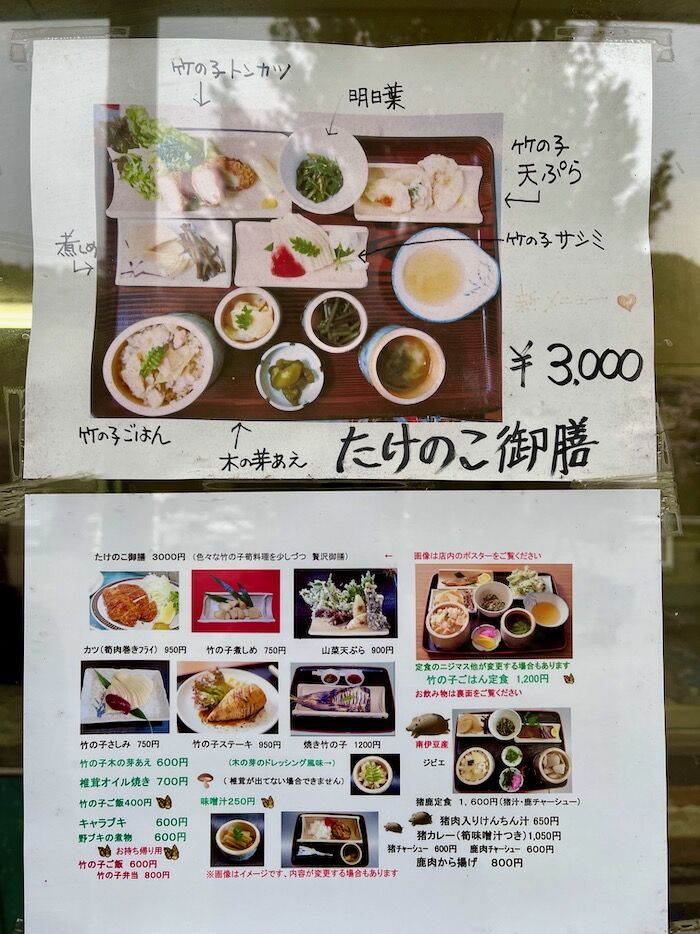 竹の子トンカツ
明日葉
竹の子
天ぷら
煮しめ
竹の子サシミ
新メニュー
¥3,000
竹の子ごはん
木の芽あえ
たけのこ御膳
たけのこ御膳 3000円 (色々な竹の子筍料理を少しづつ 贅沢御膳) ←
画像は店内のポスターをご覧ください
カツ(筍肉巻きフライ) 950円
竹の子煮しめ 750円
山菜天ぷら 900円
定食のニジマス他が変更する場合もあります
竹の子ごはん定食 1,200円
お飲み物は裏面をご覧ください
竹の子さしみ 750円
竹の子ステーキ 950円
焼き竹の子 1200円
南伊豆産
ジビエ
竹の子木の芽あえ 600円 (木の芽のドレッシング風味→)
椎茸オイル焼き 700円 (椎茸が出てない場合できません)
竹の子ご飯400円
味噌汁250円
キャラブキ 600円
野ブキの煮物 600円
お持ち帰り用
竹の子ご飯 600円
竹の子弁当 800円
※画像はイメージです、内容が変更する場合もあります
猪鹿定食 1,600円(猪汁・鹿チャーシュー)
猪肉入りけんちん汁 650円
猪カレー(筍味噌汁つき)1,050円
猪チャーシュー 600円 鹿肉チャーシュー 600円
鹿肉から揚げ 800円